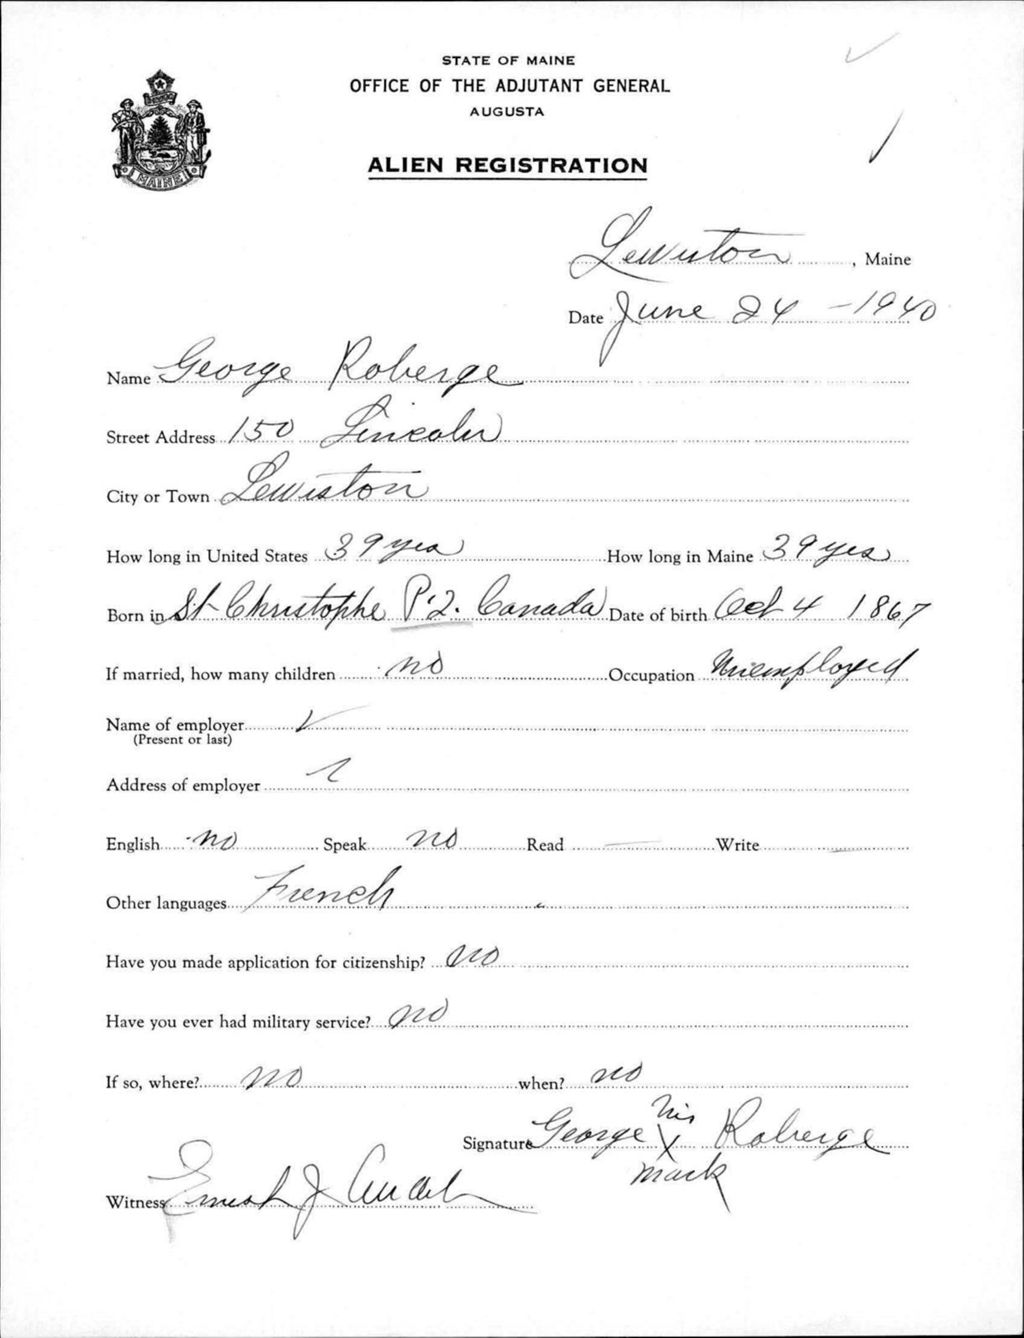 STATE OF MAINE
OFFICE OF THE ADJUTANT GENERAL
AUGUSTA
MAINE
ALIEN REGISTRATION
Lewiston, Maine
Date June 24 - 1940
Name George Roberge
Street Address 150 Lincoln
City or Town Lewiston
How long in United States 39 yrs How long in Maine 39 yrs
Born in St Christophe P.Q. Canada Date of birth Oct 4 1867
If married, how many children no Occupation Unemployed
Name of employer
(Present or last)
Address of employer
English no Speak no Read — Write —
Other languages French
Have you made application for citizenship? no
Have you ever had military service? no
If so, where? no when? no
Signature George his X mark Roberge
Witness Ernest J